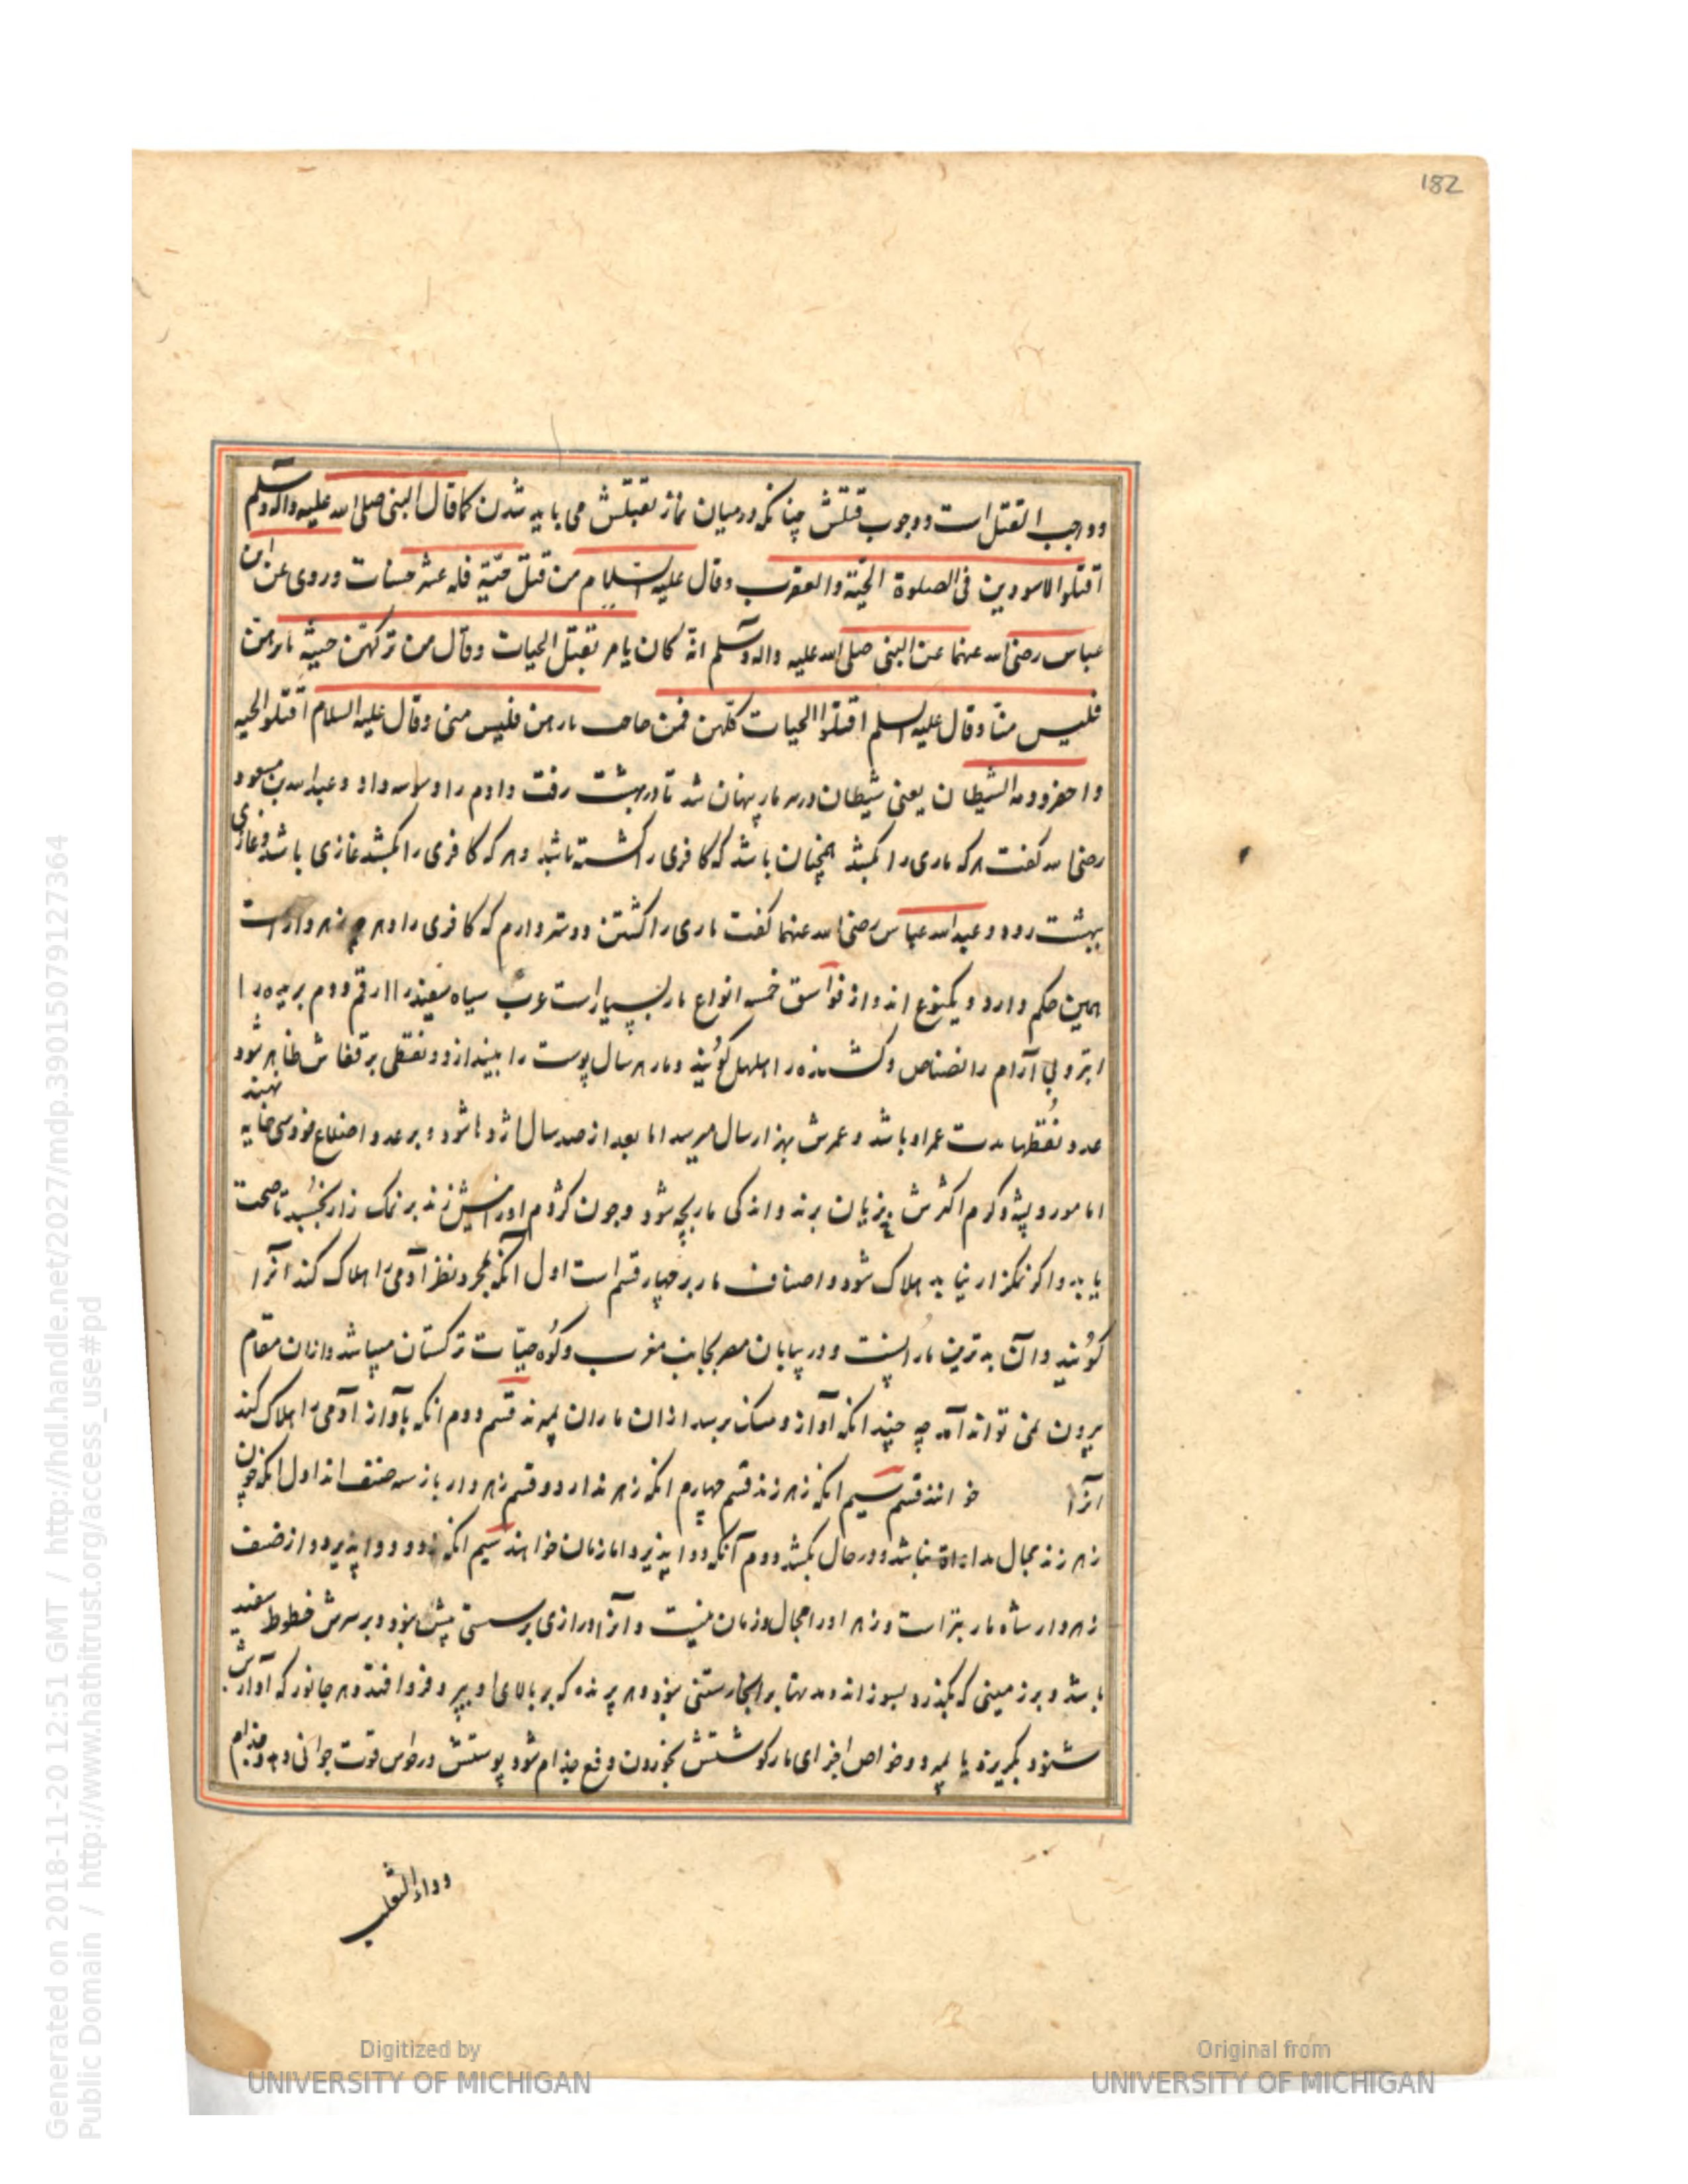 182
و واجب القتل است و وجوب قتلش چنانکه در میان نماز بقتلش می باید شدن کما قال النبی صلی الله علیه واله وسلم
اقتلوا الاسودین فی الصلوة الحیّة والعقرب وقال علیه السلام من قتل حیّة فله عشر حسنات وروی عن ابن
عباس رضی الله عنهما عن النبی صلی الله علیه واله وسلم انه کان یامر بقتل الحیات وقال من ترکهن خشیة
فلیس منا وقال علیه السلم اقتلوا الحیات کلهن فمن خاف فلیس منی وقال علیه السلام اقتلوا الحیه
الشیطان یعنی شیطان در سر مار پنهان شد تا در بهشت رفت وادم را وسوسه داد و عبدالله بن مسعود
رضی الله گفت هرکه ماری را بکشد همچنان باشد که کافری را کشته باشد و هرکه کافری را بکشد غازی باشد و غازی
بهشت رود و عبدالله عباس رضی الله عنهما گفت ماری را کشتن دوستر دارم که کافری را و هرچه زهردارست
همین حکم دارد و یکنوع اند از فواسق خمسه انواع مار بسیارست عرب سیاه سفید را ارقم و دم بریده را
ابتر و بی آرام را نضناض و کشنده را هلهل گویند و مار هر سال پوست را بیندازد و نقطی بر قفاش ظاهر شود
عدد نقطها مدت عمر او باشد و عمرش بهزار سال میرسد اما بعد از صد سال اژدها شود و بر عدد اضلاع خود سی خایه نهند
اما مور و پشه و کرم اکثرش بزیان برند و اندکی مار بچه شود و چون کژدم او را نیش زند بر نمک زار بخسبد تا صحت
یابد و اگر نمکزار نیابد هلاک شود و اصناف مار بر چهار قسم است اول آنکه بمجرد نظر آدمی را هلاک کند آنرا
گویند و آن بدترین مارانست و در بیابان مصر بجانب مغرب و کوه حیّات ترکستان میباشد و ازان مقام
بیرون نمی تواند آمد چه چندانکه آواز و مسکن برسد ازان ماران بمیرند قسم دوم انکه بآواز آدمی را هلاک کند
آنرا خوانند قسم سیم انکه زهر زند قسم چهارم انکه زهر ندارد و قسم زهردار باز سه صنف اند اول انکه چون
زهر زند مجال مداواة نباشد و در حال بکشد دوم آنکه دوا پذیرد اما زمان خواهد سیم انکه زود دوا پذیرد و از صنف
زهردار شاه مار بتر است و زهر او را مجال و زمان نیست و آنرا درازی بدستی بیش نبود و بر سرش خطوط سفید
باشد و بر زمینی که بگذرد بسوزاند و مدتها بر آنجا رستنی نبود و هر پرنده که بر بالای او پرد فرو افتد و هر جانور که آوازش
شنود بگریزد یا بمیرد و خواص اجزای مار گوشتش بخوردن دفع جذام شود پوستش قوت جوانی دهد و جذام
وداء الثعلب
Digitized by
UNIVERSITY OF MICHIGAN
Original from
UNIVERSITY OF MICHIGAN
Generated on 2018-11-20 12:51 GMT / http://hdl.handle.net/2027/mdp.39015079127364
Public Domain / http://www.hathitrust.org/access_use#pd